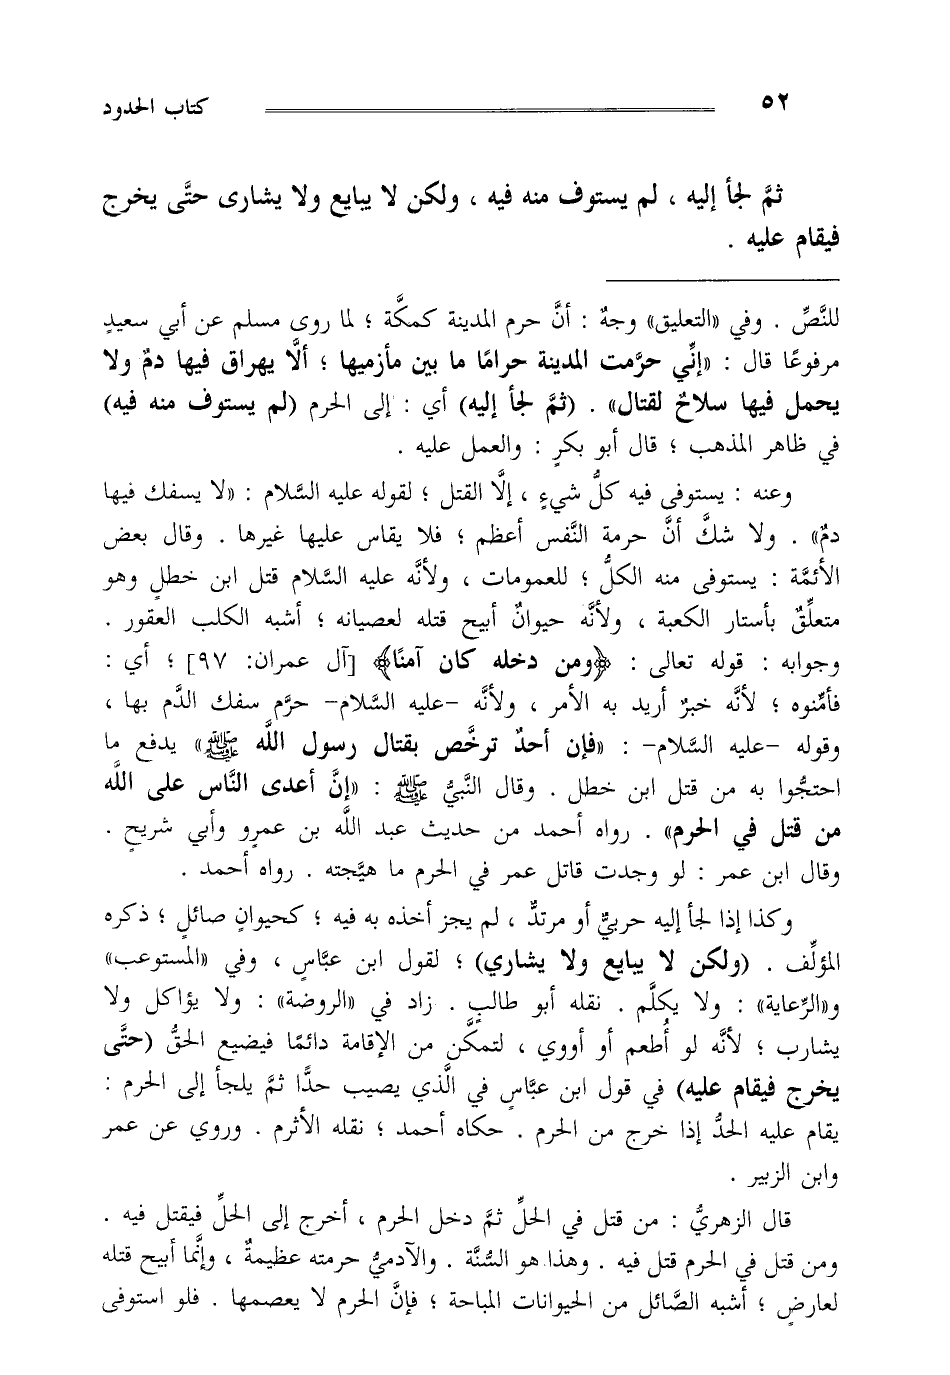 ٥٢ كتاب الحدود
ثمَّ لجأ إليه ، لم يستوف منه فيه ، ولكن لا يبايع ولا يشارى حتَّى يخرج
فيقام عليه .
للنَّصِّ . وفي «التعليق» وجهٌ : أنَّ حرم المدينة كمكَّة ؛ لما روى مسلم عن أبي سعيدٍ
مرفوعًا قال : «إنِّي حرَّمت المدينة حرامًا ما بين مأزميها ؛ ألَّا يهراق فيها دمٌ ولا
يحمل فيها سلاحٌ لقتال» . (ثمَّ لجأ إليه) أي : إلى الحرم (لم يستوف منه فيه)
في ظاهر المذهب ؛ قال أبو بكرٍ : والعمل عليه .
وعنه : يستوفى فيه كلُّ شيءٍ ، إلَّا القتل ؛ لقوله عليه السَّلام : «لا يسفك فيها
دمٌ» . ولا شكَّ أنَّ حرمة النَّفس أعظم ؛ فلا يقاس عليها غيرها . وقال بعض
الأئمَّة : يستوفى منه الكلُّ ؛ للعمومات ، ولأنَّه عليه السَّلام قتل ابن خطلٍ وهو
متعلِّقٌ بأستار الكعبة ، ولأنَّه حيوانٌ أبيح قتله لعصيانه ؛ أشبه الكلب العقور .
وجوابه : قوله تعالى : ﴿ومن دخله كان آمنًا﴾ [آل عمران: ٩٧] ؛ أي :
فأمِّنوه ؛ لأنَّه خبرٌ أريد به الأمر ، ولأنَّه -عليه السَّلام- حرَّم سفك الدَّم بها ،
وقوله -عليه السَّلام- : «فإن أحدٌ ترخَّص بقتال رسول اللَّه ﷺ» يدفع ما
احتجُّوا به من قتل ابن خطل . وقال النَّبيُّ ﷺ : «إنَّ أعدى النَّاس على اللَّه
من قتل في الحرم» . رواه أحمد من حديث عبد اللَّه بن عمرٍو وأبي شريحٍ .
وقال ابن عمر : لو وجدت قاتل عمر في الحرم ما هيَّجته . رواه أحمد .
وكذا إذا لجأ إليه حربيٌّ أو مرتدٌّ ، لم يجز أخذه به فيه ؛ كحيوانٍ صائلٍ ؛ ذكره
المؤلِّف . (ولكن لا يبايع ولا يشاري) ؛ لقول ابن عبَّاسٍ ، وفي «المستوعب»
و«الرِّعاية» : ولا يكلَّم . نقله أبو طالبٍ . زاد في «الروضة» : ولا يؤاكل ولا
يشارب ؛ لأنَّه لو أُطعم أو أووي ، لتمكَّن من الإقامة دائمًا فيضيع الحقُّ (حتَّى
يخرج فيقام عليه) في قول ابن عبَّاسٍ في الَّذي يصيب حدًّا ثمَّ يلجأ إلى الحرم :
يقام عليه الحدُّ إذا خرج من الحرم . حكاه أحمد ؛ نقله الأثرم . وروي عن عمر
وابن الزبير .
قال الزهريُّ : من قتل في الحلِّ ثمَّ دخل الحرم ، أخرج إلى الحلِّ فيقتل فيه .
ومن قتل في الحرم قتل فيه . وهذا هو السُّنَّة . والآدميُّ حرمته عظيمةٌ ، وإنَّما أبيح قتله
لعارضٍ ؛ أشبه الصَّائل من الحيوانات المباحة ؛ فإنَّ الحرم لا يعصمها . فلو استوفى